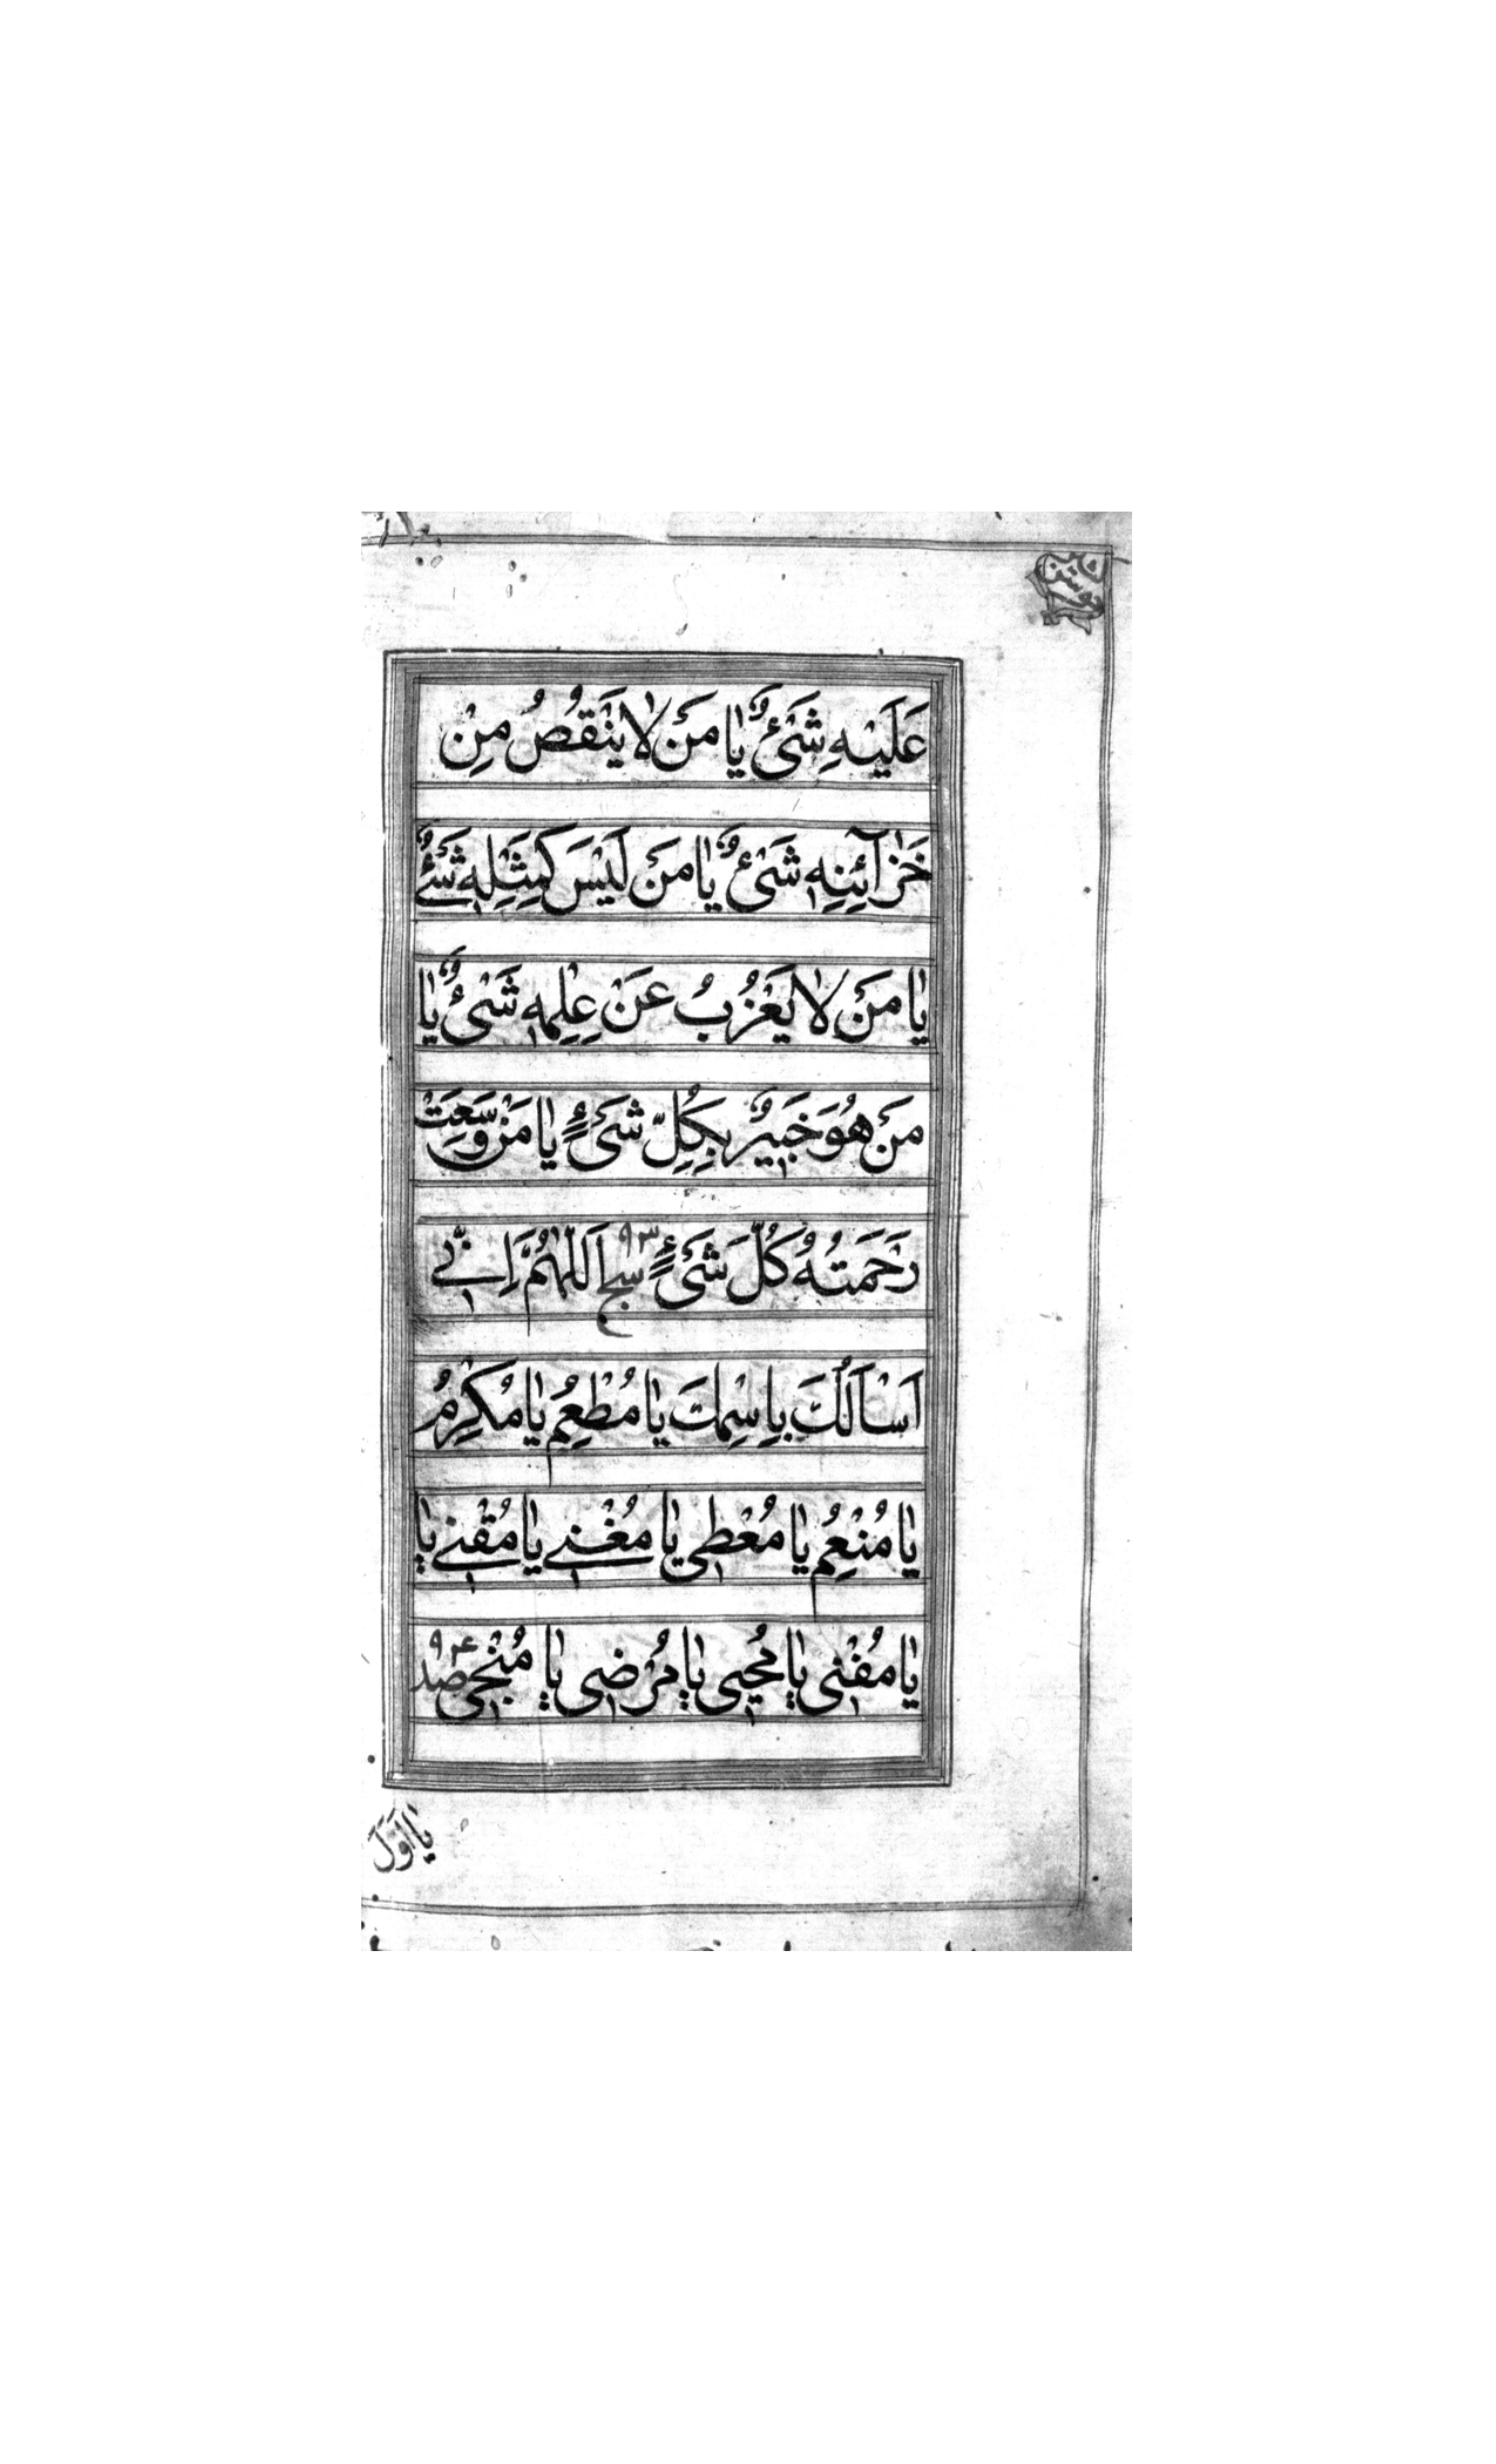 عَلَيْهِ شَیْءٌ يٰا مَنْ لٰا يَنْقُصُ مِنْ
خَزٰآئِنِهٖ شَیْءٌ يٰا مَنْ لَيْسَ كَمِثْلِهٖ شَیْءٌ
يٰا مَنْ لٰا يَعْزُبُ عَنْ عِلْمِهٖ شَیْءٌ يٰا
مَنْ هُوَ خَبٖيرٌ بِكُلِّ شَیْءٍ يٰا مَنْ وَسِعَتْ
رَحْمَتُهُ كُلَّ شَیْءٍ ٩٣ اَللّٰهُمَّ اِنّٖے
اَسْاَلُكَ بِاسْمِكَ يٰا مُطْعِمُ يٰا مُكْرِمُ
يٰا مُنْعِمُ يٰا مُعْطٖی يٰا مُغْنٖے يٰا مُقْنٖے يٰا
يٰا مُفْنٖی يٰا مُحْيٖی يٰا مُرْضٖی يٰا مُنْجٖی ٩٤ صد
يٰا اَوَّلَ